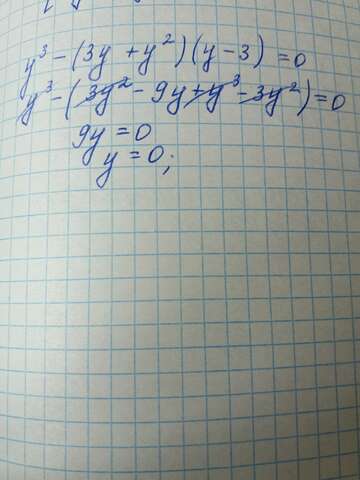 y³ - (3y + y²)(y - 3) = 0
y³ - (3y² - 9y + y³ - 3y²) = 0
9y = 0
y = 0;